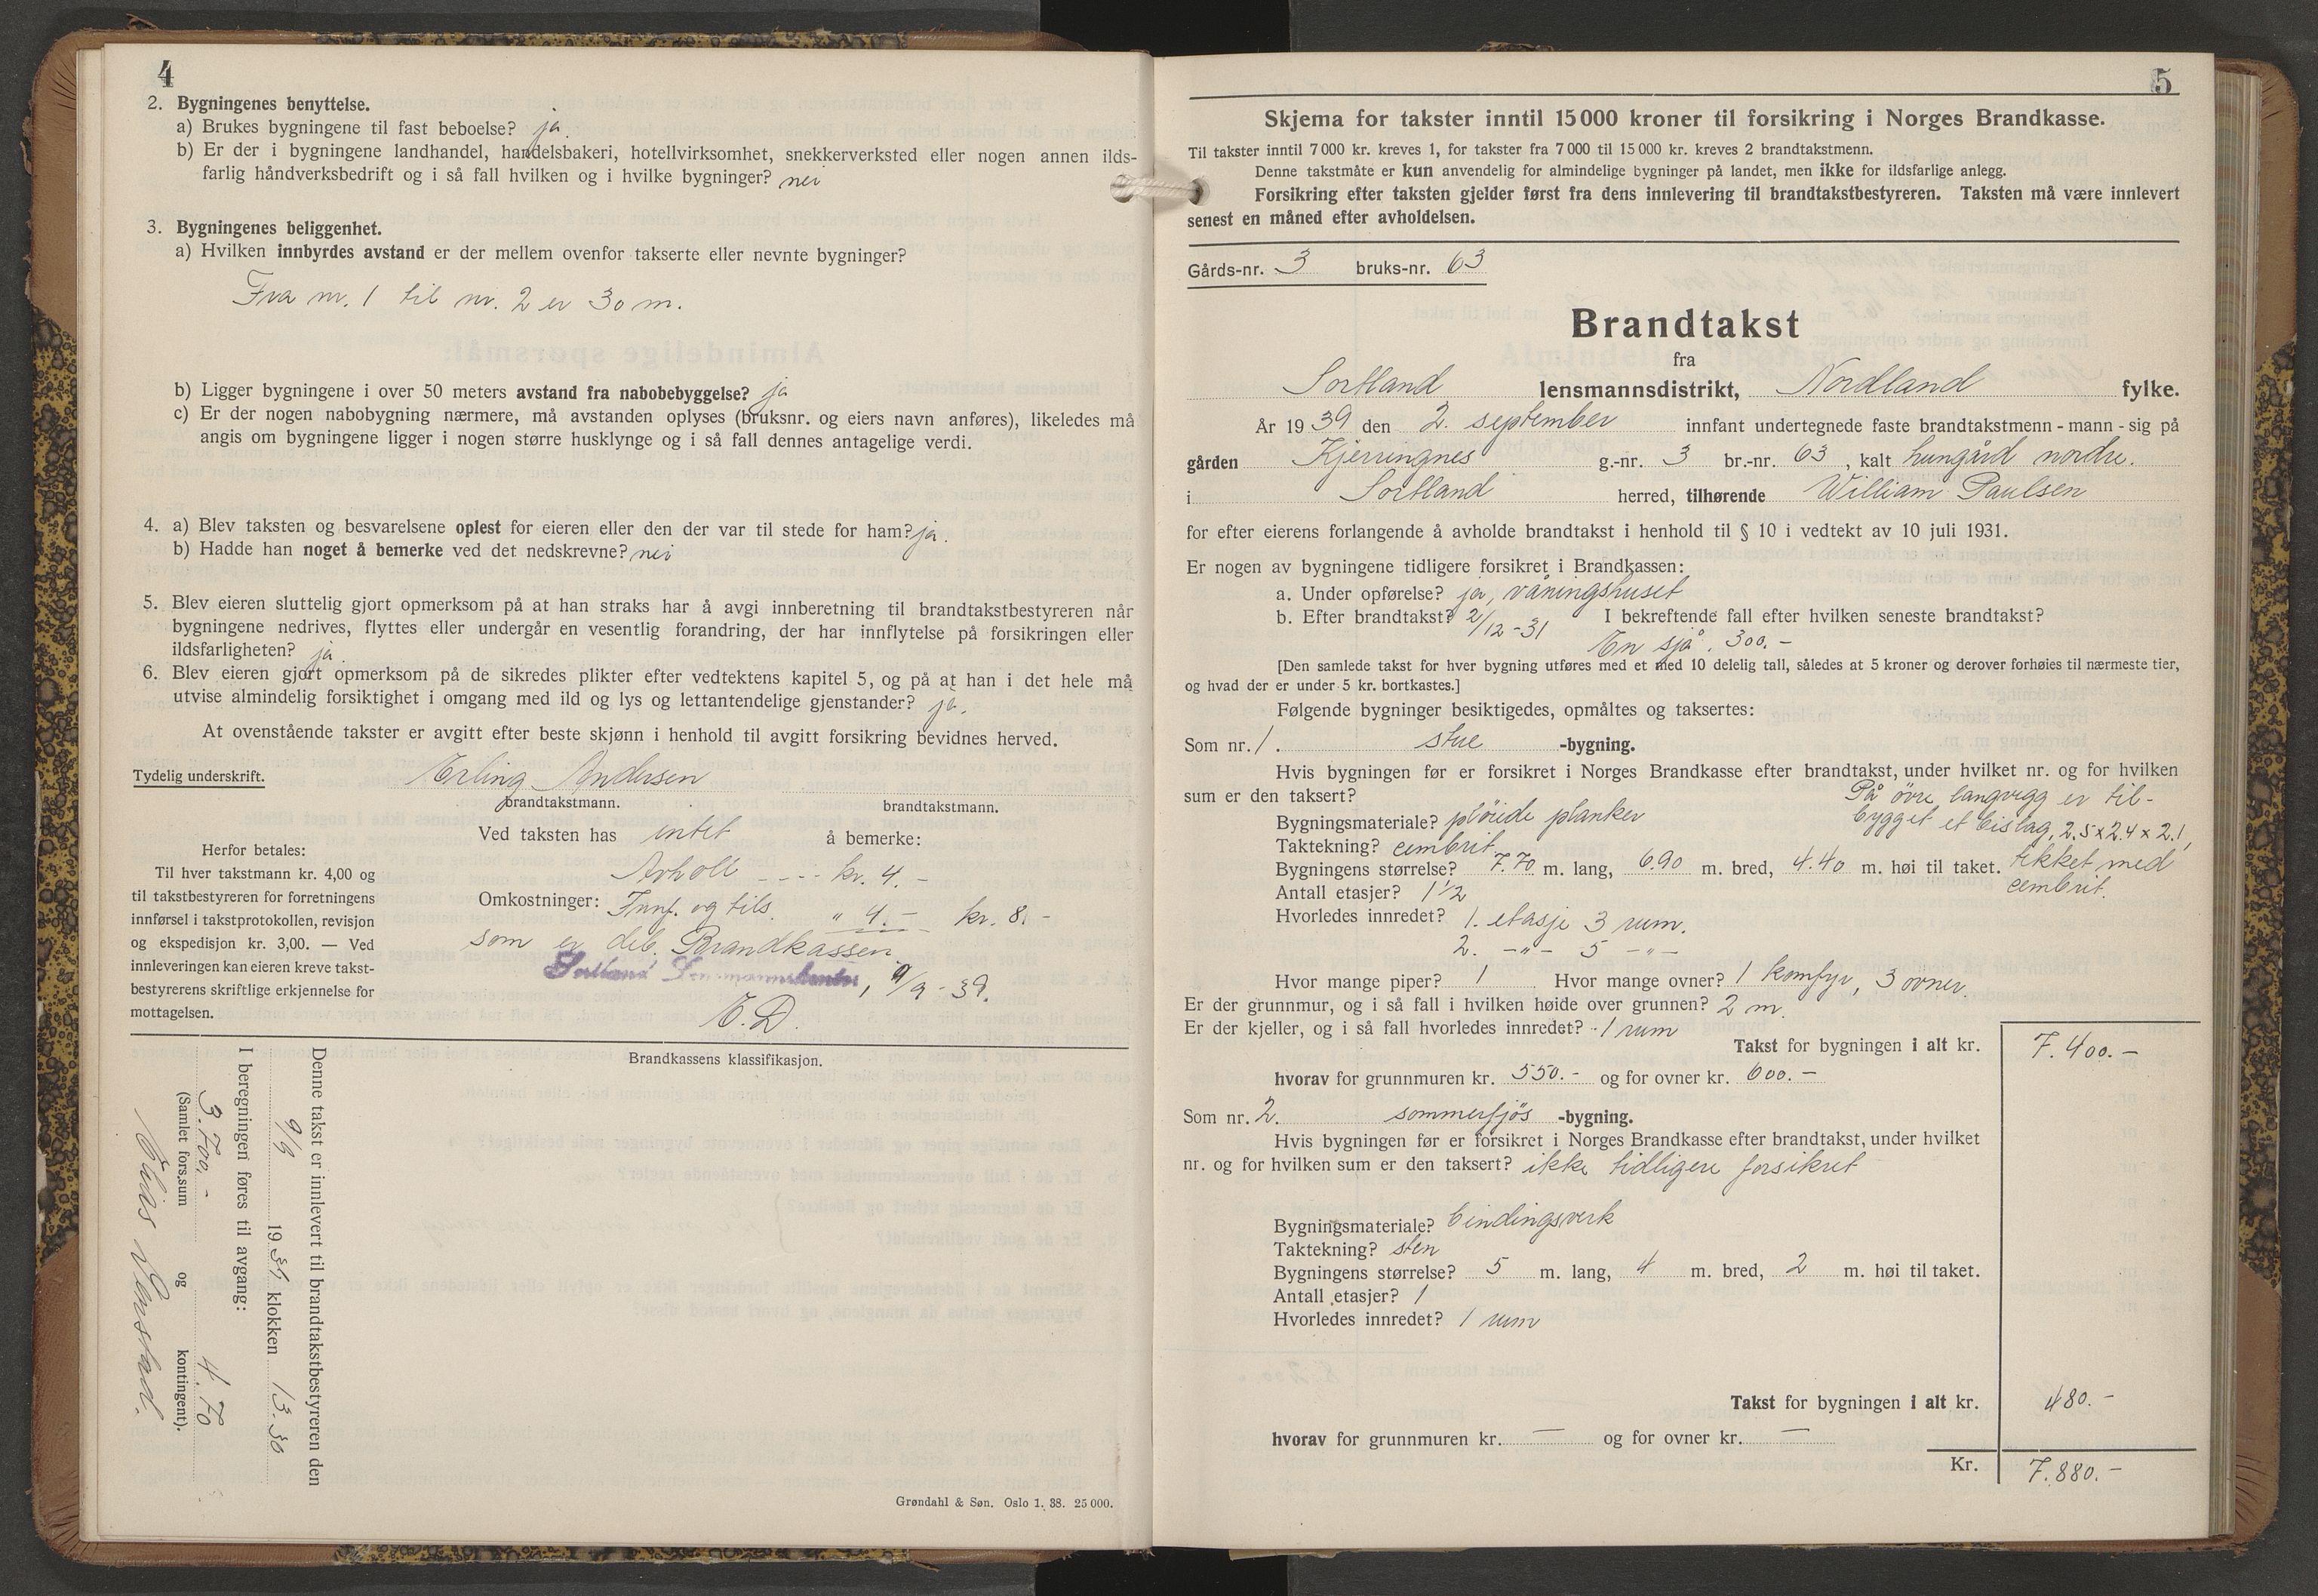 4
2. Bygningenes benyttelse.
a) Brukes bygningene til fast beboelse? ja.
b) Er der i bygningene landhandel, handelsbakeri, hotellvirksomhet, snekkerverksted eller nogen annen ilds-
farlig håndverksbedrift og i så fall hvilken og i hvilke bygninger? nei
3. Bygningenes beliggenhet.
a) Hvilken innbyrdes avstand er der mellem ovenfor takserte eller nevnte bygninger?
Fra nr. 1 til nr. 2 er 30 m.
b) Ligger bygningene i over 50 meters avstand fra nabobebyggelse? ja
c) Er der nogen nabobygning nærmere, må avstanden oplyses (bruksnr. og eiers navn anføres), likeledes må
angis om bygningene ligger i nogen større husklynge og i så fall dennes antagelige verdi.
4. a) Blev taksten og besvarelsene oplest for eieren eller den der var til stede for ham? ja.
b) Hadde han noget å bemerke ved det nedskrevne? nei
5. Blev eieren sluttelig gjort opmerksom på at han straks har å avgi innberetning til brandtakstbestyreren når
bygningene nedrives, flyttes eller undergår en vesentlig forandring, der har innflytelse på forsikringen eller
ildsfarligheten? ja.
6. Blev eieren gjort opmerksom på de sikredes plikter efter vedtektens kapitel 5, og på at han i det hele må
utvise almindelig forsiktighet i omgang med ild og lys og lettantendelige gjenstander? ja.
At ovenstående takster er avgitt efter beste skjønn i henhold til avgitt forsikring bevidnes herved.
Tydelig underskrift. Erling Andersen
brandtakstmann. brandtakstmann.
Ved taksten has intet å bemerke:
Avholt ---- kr. 4.-
Omkostninger: Innf. og tils. " 4.- kr. 8.-
som er deb. Brandkassen.
Sortland Lensmannskontor, 9/9-39.
E.D.
Herfor betales:
Til hver takstmann kr. 4,00 og
til takstbestyreren for forretningens
innførsel i takstprotokollen, revisjon
og ekspedisjon kr. 3,00. — Ved
innleveringen kan eieren kreve takst-
bestyrerens skriftlige erkjennelse for
mottagelsen.
Brandkassens klassifikasjon.
Denne takst er innlevert til brandtakstbestyreren den
9/9 1939 klokken 13.30
I beregningen føres til avgang:
3.700.- 4.70
(Samlet fors.sum og kontingent).
Grøndahl & Søn. Oslo 1. 38. 25 000.
5
Skjema for takster inntil 15 000 kroner til forsikring i Norges Brandkasse.
Til takster inntil 7 000 kr. kreves 1, for takster fra 7 000 til 15 000 kr. kreves 2 brandtakstmenn.
Denne takstmåte er kun anvendelig for almindelige bygninger på landet, men ikke for ildsfarlige anlegg.
Forsikring efter taksten gjelder først fra dens innlevering til brandtakstbestyreren. Taksten må være innlevert
senest en måned efter avholdelsen.
Gårds-nr. 3 bruks-nr. 63
Brandtakst
fra
Sortland lensmannsdistrikt, Nordland fylke.
År 1939 den 2. september innfant undertegnede faste brandtakstmenn - mann - sig på
gården Kjerringnes g.-nr. 3 br.-nr. 63, kalt Lungård nordre.
i Sortland herred, tilhørende William Paulsen
for efter eierens forlangende å avholde brandtakst i henhold til § 10 i vedtekt av 10 juli 1931.
Er nogen av bygningene tidligere forsikret i Brandkassen:
a. Under opførelse? ja, våningshuset
b. Efter brandtakst? 2/12-31 I bekreftende fall efter hvilken seneste brandtakst?
En sjå. 300.-
[Den samlede takst for hver bygning utføres med et med 10 delelig tall, således at 5 kroner og derover forhøies til nærmeste tier,
og hvad der er under 5 kr. bortkastes.]
Følgende bygninger besiktigedes, opmåltes og taksertes:
Som nr. 1. stue -bygning.
Hvis bygningen før er forsikret i Norges Brandkasse efter brandtakst, under hvilket nr. og for hvilken
sum er den taksert?
På øvre langvegg er til-
bygget et bislag, 2.5 x 2.4 x 2.1,
tekket med
cembrit.
Bygningsmateriale? pløiede planker
Taktekning? cembrit
Bygningens størrelse? 7.70 m. lang, 6.90 m. bred, 4.40 m. høi til taket.
Antall etasjer? 1 1/2
Hvorledes innredet? 1. etasje 3 rum.
2. -"- 5 -"-
Hvor mange piper? 1 Hvor mange ovner? 1 komfyr, 3 ovner
Er der grunnmur, og i så fall i hvilken høide over grunnen? 2 m.
Er der kjeller, og i så fall hvorledes innredet? 1 rum
Takst for bygningen i alt kr. 7.400.-
hvorav for grunnmuren kr. 550.- og for ovner kr. 600.-
Som nr. 2. sommerfjøs -bygning.
Hvis bygningen før er forsikret i Norges Brandkasse efter brandtakst, under hvilket
nr. og for hvilken sum er den taksert? ikke tidligere forsikret
Bygningsmateriale? bindingsverk
Taktekning? sten
Bygningens størrelse? 5 m. lang, 4 m. bred, 2 m. høi til taket.
Antall etasjer? 1
Hvorledes innredet? 1 rum
Takst for bygningen i alt kr. 480.-
hvorav for grunnmuren kr. — og for ovner kr. —
Kr. 7.880.-